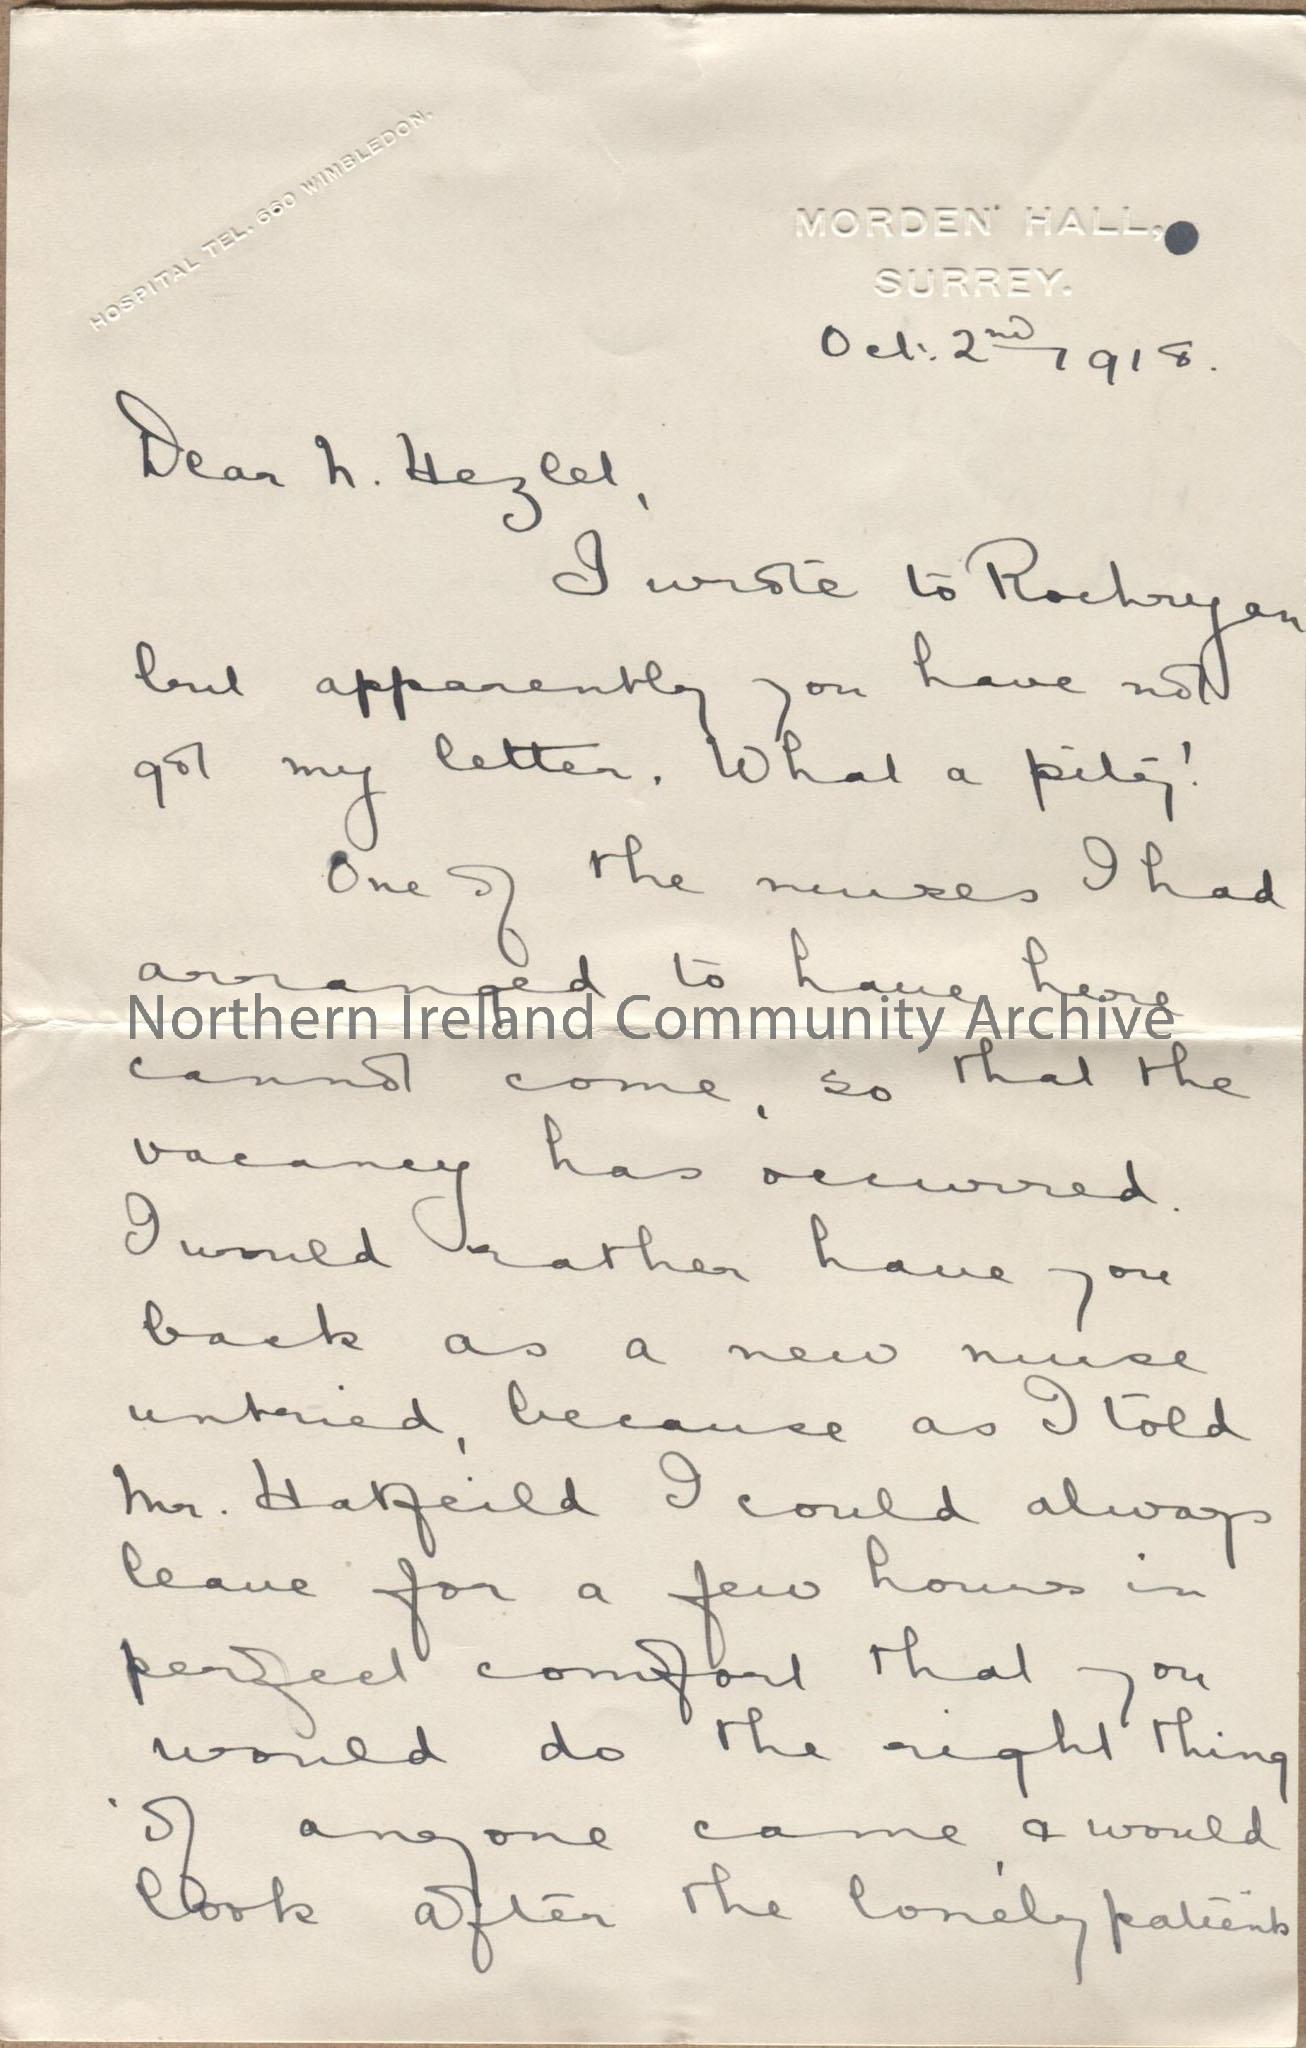 HOSPITAL TEL. 660 WIMBLEDON.
MORDEN HALL,
SURREY.
Oct. 2nd 1918.
Dear N. Hezlet,
I wrote to Rochryan
but apparently you have not
got my letter. What a pity!
One of the nurses I had
arranged to have here
Northern Ireland Community Archive
cannot come, so that the
vacancy has occurred.
I would rather have you
back as a new nurse
untried, because as I told
Mr. Hatfeild I could always
leave for a few hours in
perfect comfort that you
would do the right thing
if anyone came, & would
look after the lonely patients